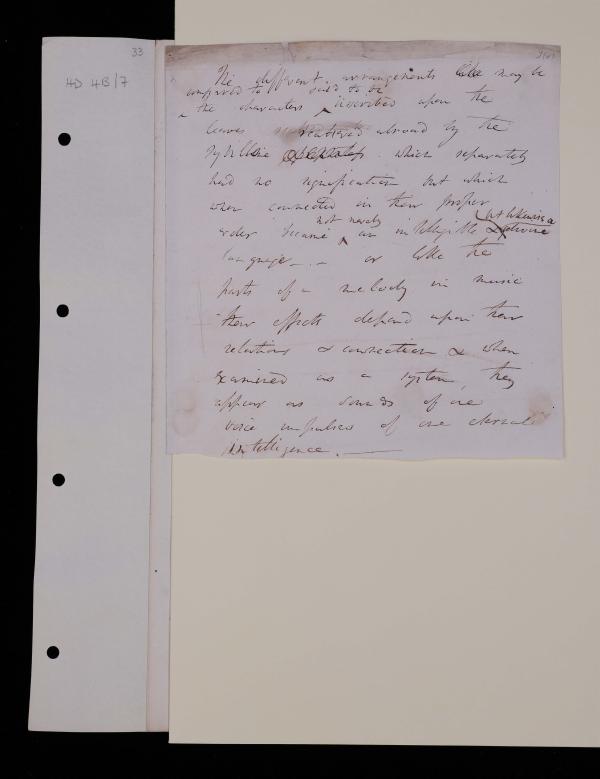 33
HD 4B/7
The different arrangements like may be
compared to said to be
the characters inscribed upon the
leaves scattered abroad by the
Sybilline which separately
had no signification but which
when connected in their proper
not merely but likewise a
order became an intelligible & divine
language - or like the
parts of a melody in music
their effects depend upon their
relations & connection & when
examined as a system, they
appear as sounds of one
voice impulses of one eternal
intelligence. —